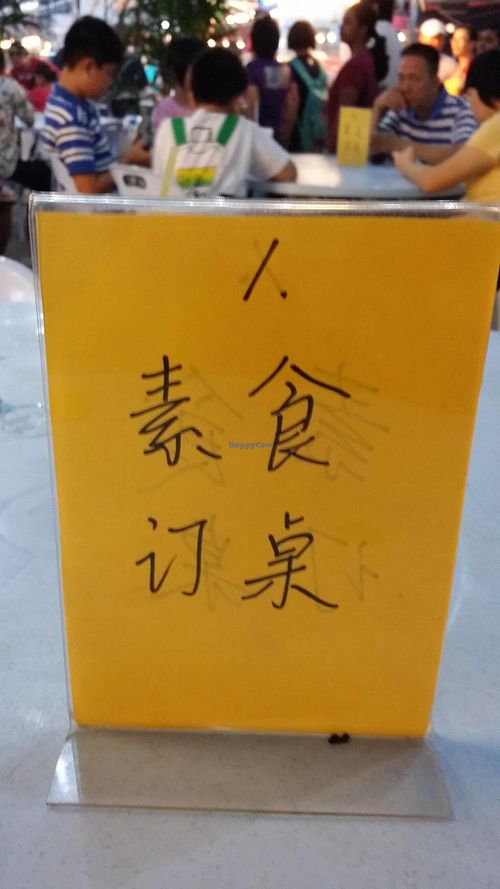 1.
素食
订桌
HappyCow